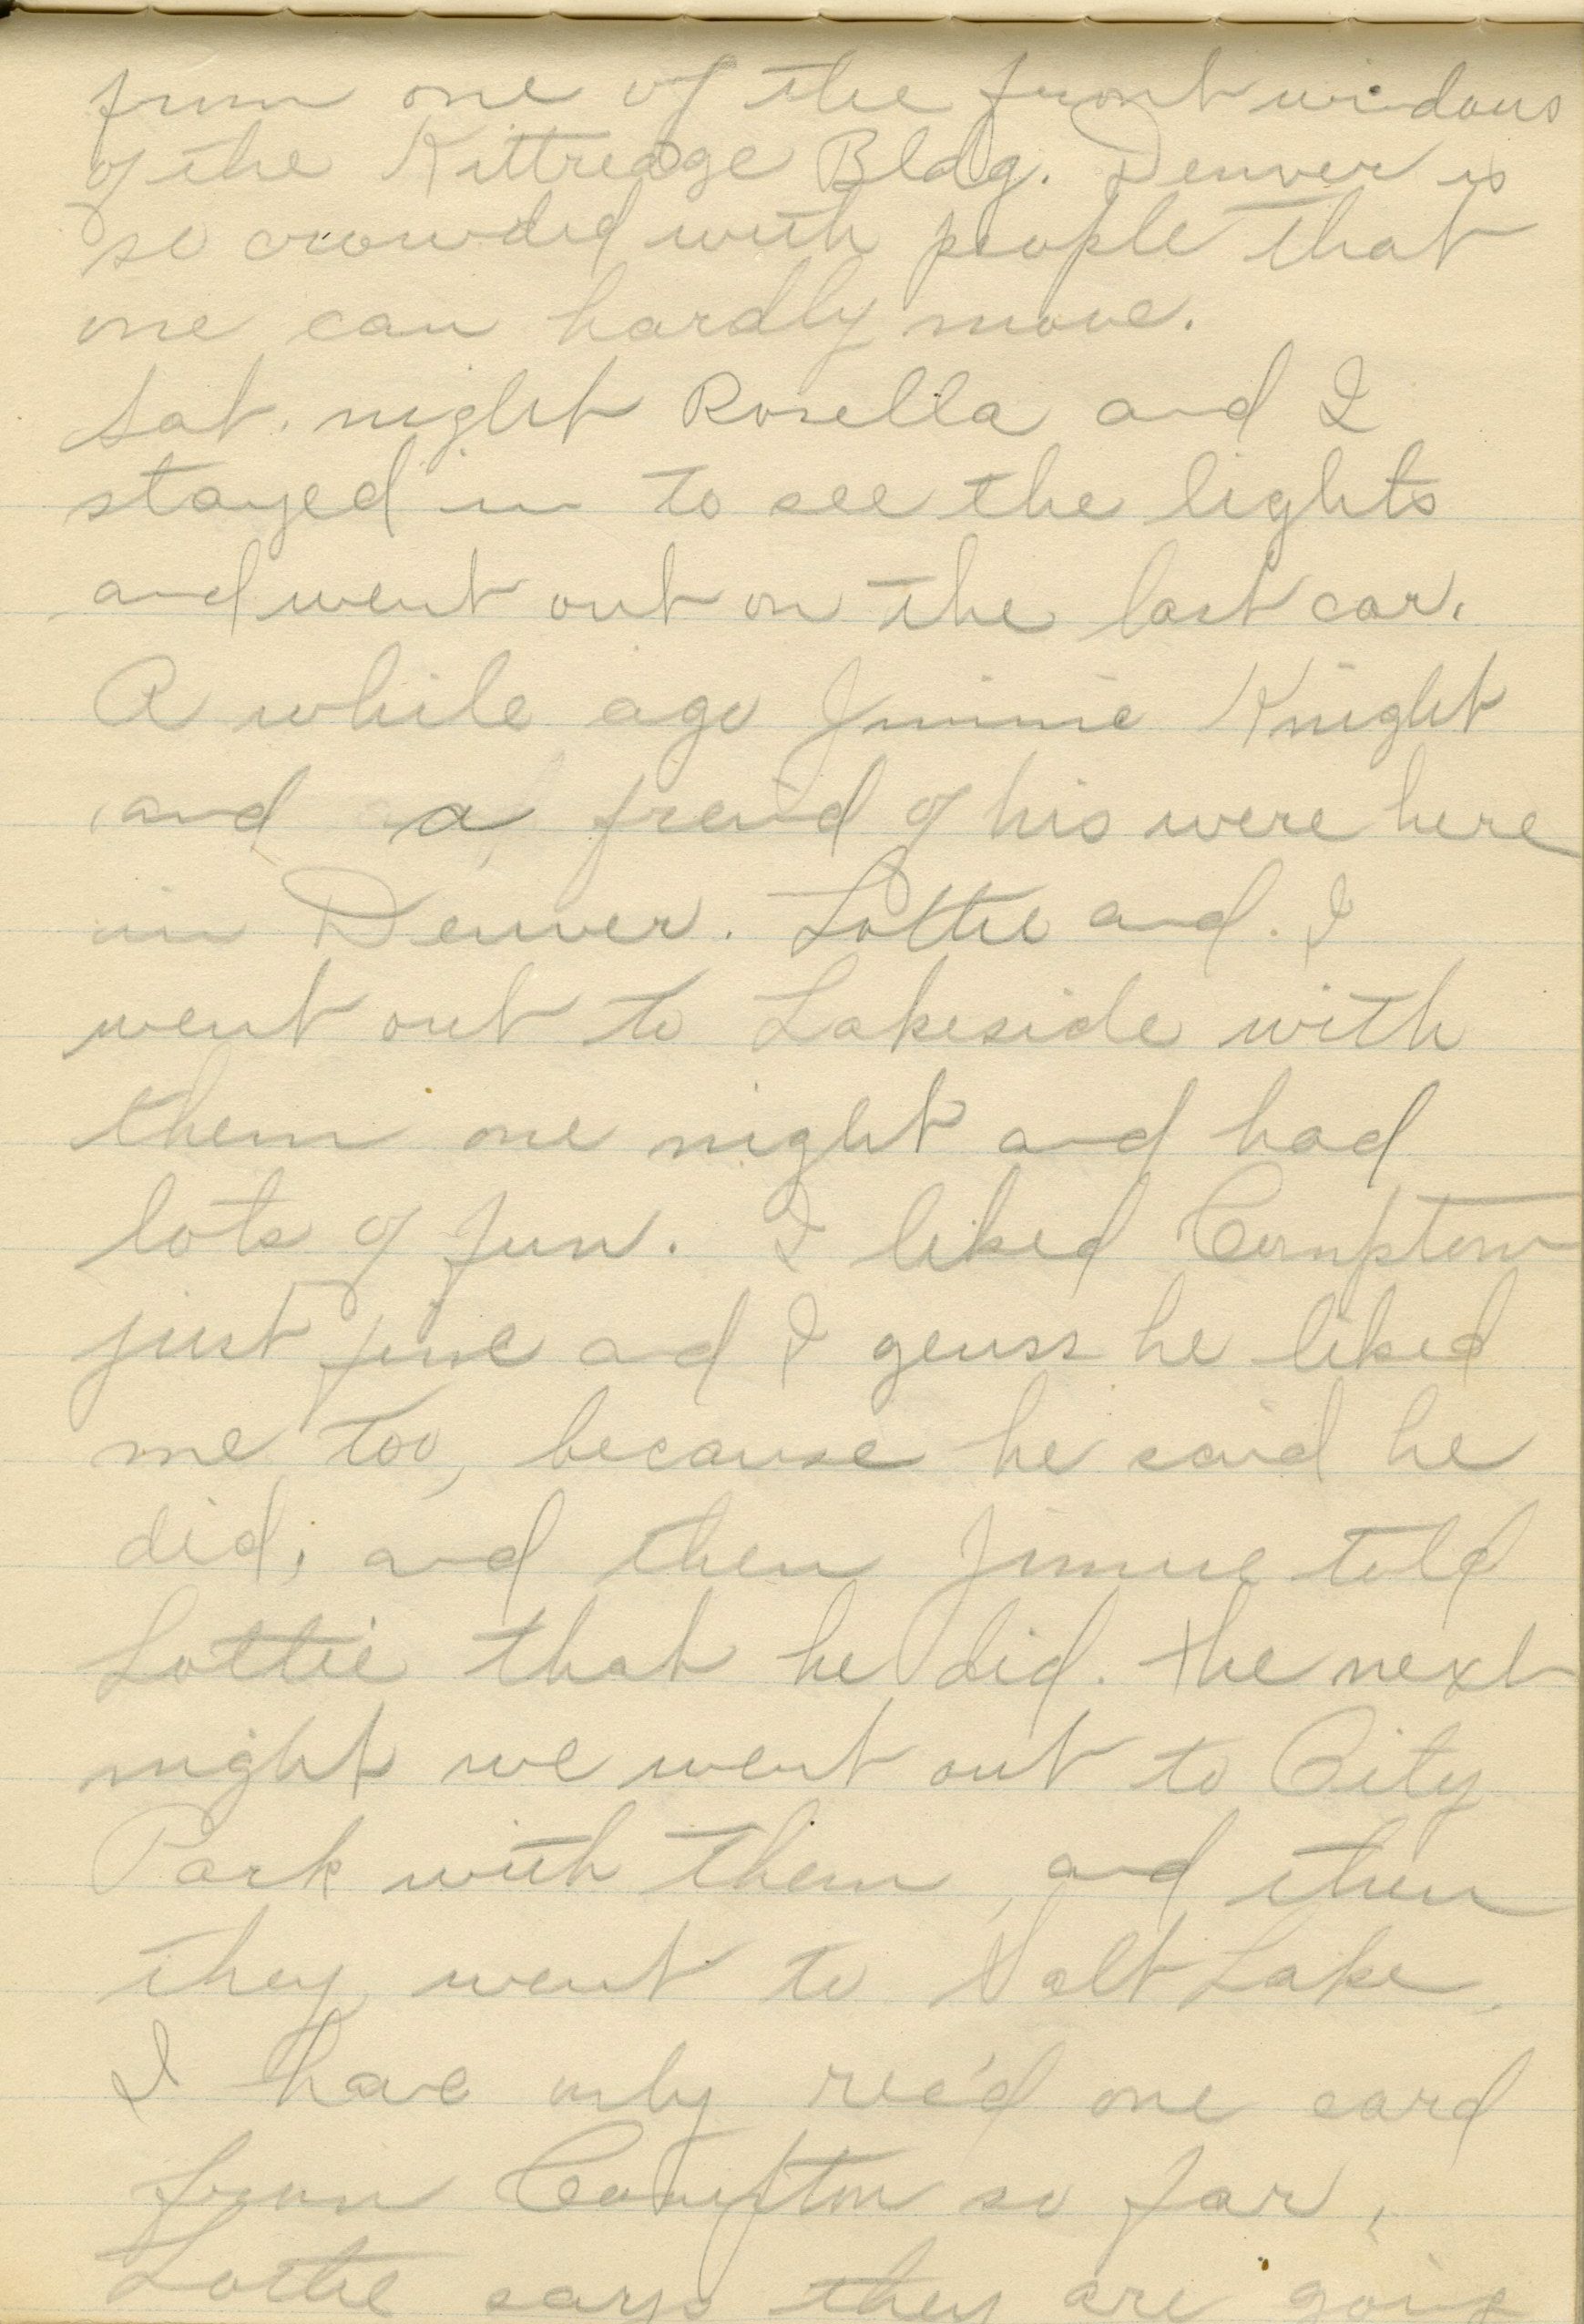 from one of the front windows
of the Kittredge Bldg. Denver is
so crowded with people that
one can hardly move.
Sat. night Rosella and I
stayed in to see the lights
and went out on the last car.
A while ago Jimmie Knight
and a freind of his were here
in Denver. Lottie and I
went out to Lakeside with
them one night and had
lots of fun. I liked Compton
just fine and I geuss he liked
me too, because he said he
did, and then Jimmie told
Lottie that he did. the next
night we went out to City
Park with them, and then
they went to Salt Lake.
I have only rec'd one card
from Compton so far,
Lottie says they are going